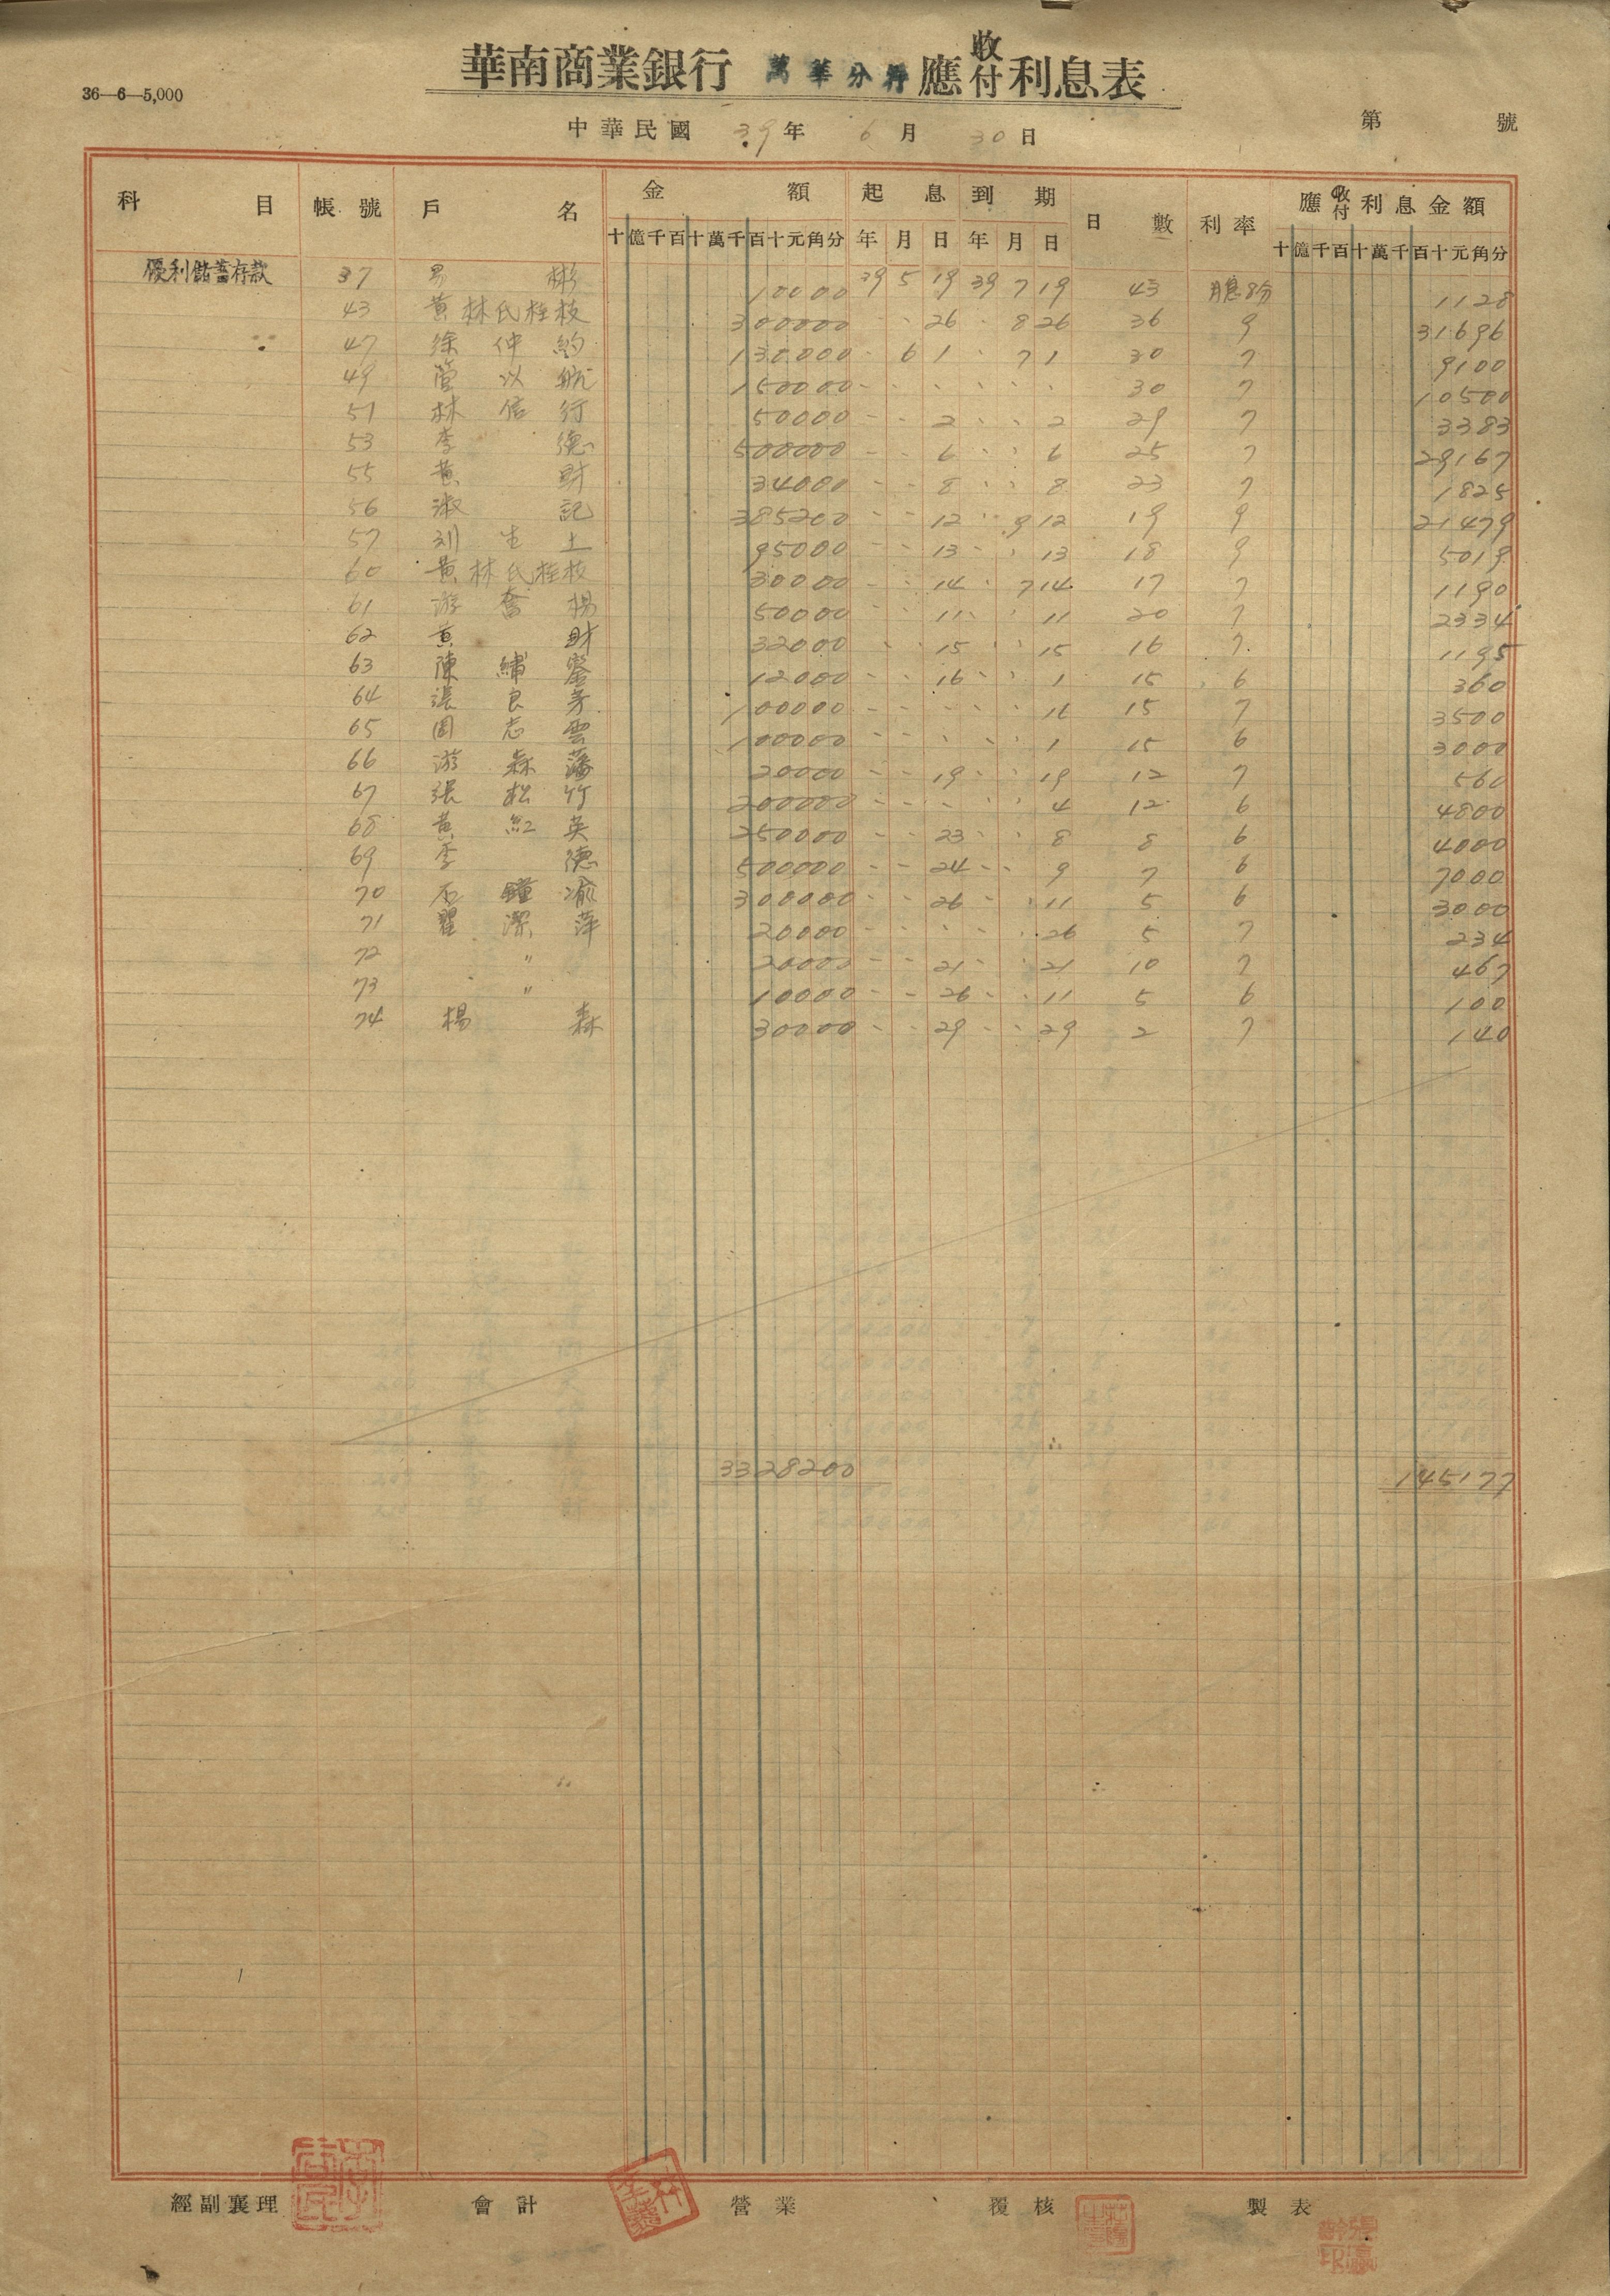 華南商業銀行 萬華分行 應收付利息表
36—6—5,000
中華民國 39年 6月 30日
第 號
科目 帳號 戶名 金額 起息到期 日數 利率 應收付利息金額
十億千百十萬千百十元角分 年月日年月日 十億千百十萬千百十元角分
優利儲蓄存款 37 易彬 10000 39 5 19 39 7 19 43 月息8分 1128
43 黃林氏桂枝 300000 〃 〃 26 〃 8 26 36 9 31696
47 徐仲約 130000 〃 6 1 〃 7 1 30 7 9100
49 管以航 150000 〃 〃 〃 〃 〃 〃 30 7 10500
51 林信行 50000 〃 〃 2 〃 〃 2 29 7 3383
53 李德 500000 〃 〃 6 〃 〃 6 25 7 29167
55 黃財 34000 〃 〃 8 〃 〃 8 23 7 1825
56 淑記 385200 〃 〃 12 〃 9 12 19 9 21479
57 刘生土 95000 〃 〃 13 〃 〃 13 18 9 5019
60 黃林氏桂枝 30000 〃 〃 14 〃 7 14 17 7 1190
61 游奮楊 50000 〃 〃 11 〃 〃 11 20 7 2334
62 黃財 32000 〃 〃 15 〃 〃 15 16 7 1195
63 陳繡 12000 〃 〃 16 〃 〃 1 15 6 360
64 張良芳 100000 〃 〃 〃 〃 〃 16 15 7 3500
65 周志雲 100000 〃 〃 〃 〃 〃 1 15 6 3000
66 游森藩 20000 〃 〃 19 〃 〃 19 12 7 560
67 張松竹 200000 〃 〃 〃 〃 〃 4 12 6 4800
68 黃紅英 250000 〃 〃 23 〃 〃 8 8 6 4000
69 李德 500000 〃 〃 24 〃 〃 9 7 6 7000
70 石鐘渝 300000 〃 〃 26 〃 〃 11 5 6 3000
71 翟潔萍 20000 〃 〃 〃 〃 〃 26 5 7 234
72 〃 20000 〃 〃 21 〃 〃 21 10 7 467
73 〃 10000 〃 〃 26 〃 〃 11 5 6 100
74 楊森 30000 〃 〃 29 〃 〃 29 2 7 140
3328200 145177
經副襄理 會計 營業 覆核 製表